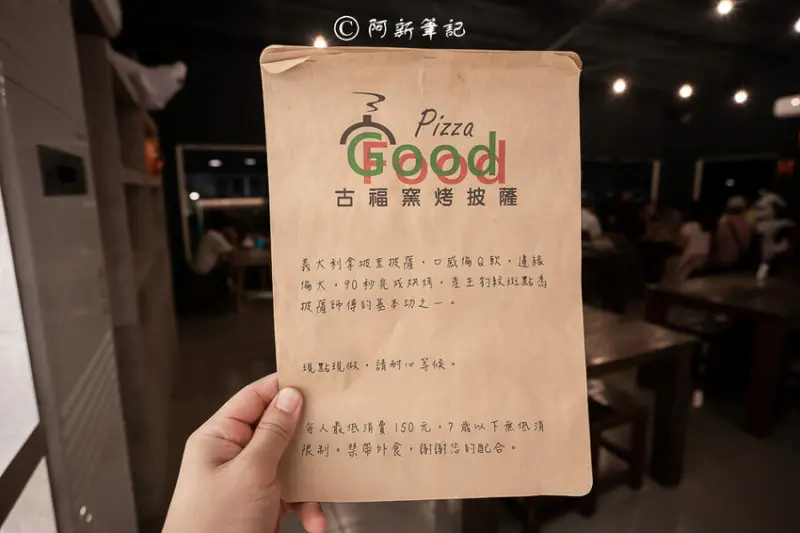 © 阿新筆記
Pizza
Good
Food
古福窯烤披薩
義大利拿坡里披薩，口感偏Q軟，邊緣
偏大，90秒完成烘烤，產生豹紋斑點為
披薩師傅的基本功之一。
現點現做，請耐心等候。
每人最低消費150元，7歲以下無低消
限制。禁帶外食，謝謝您的配合。